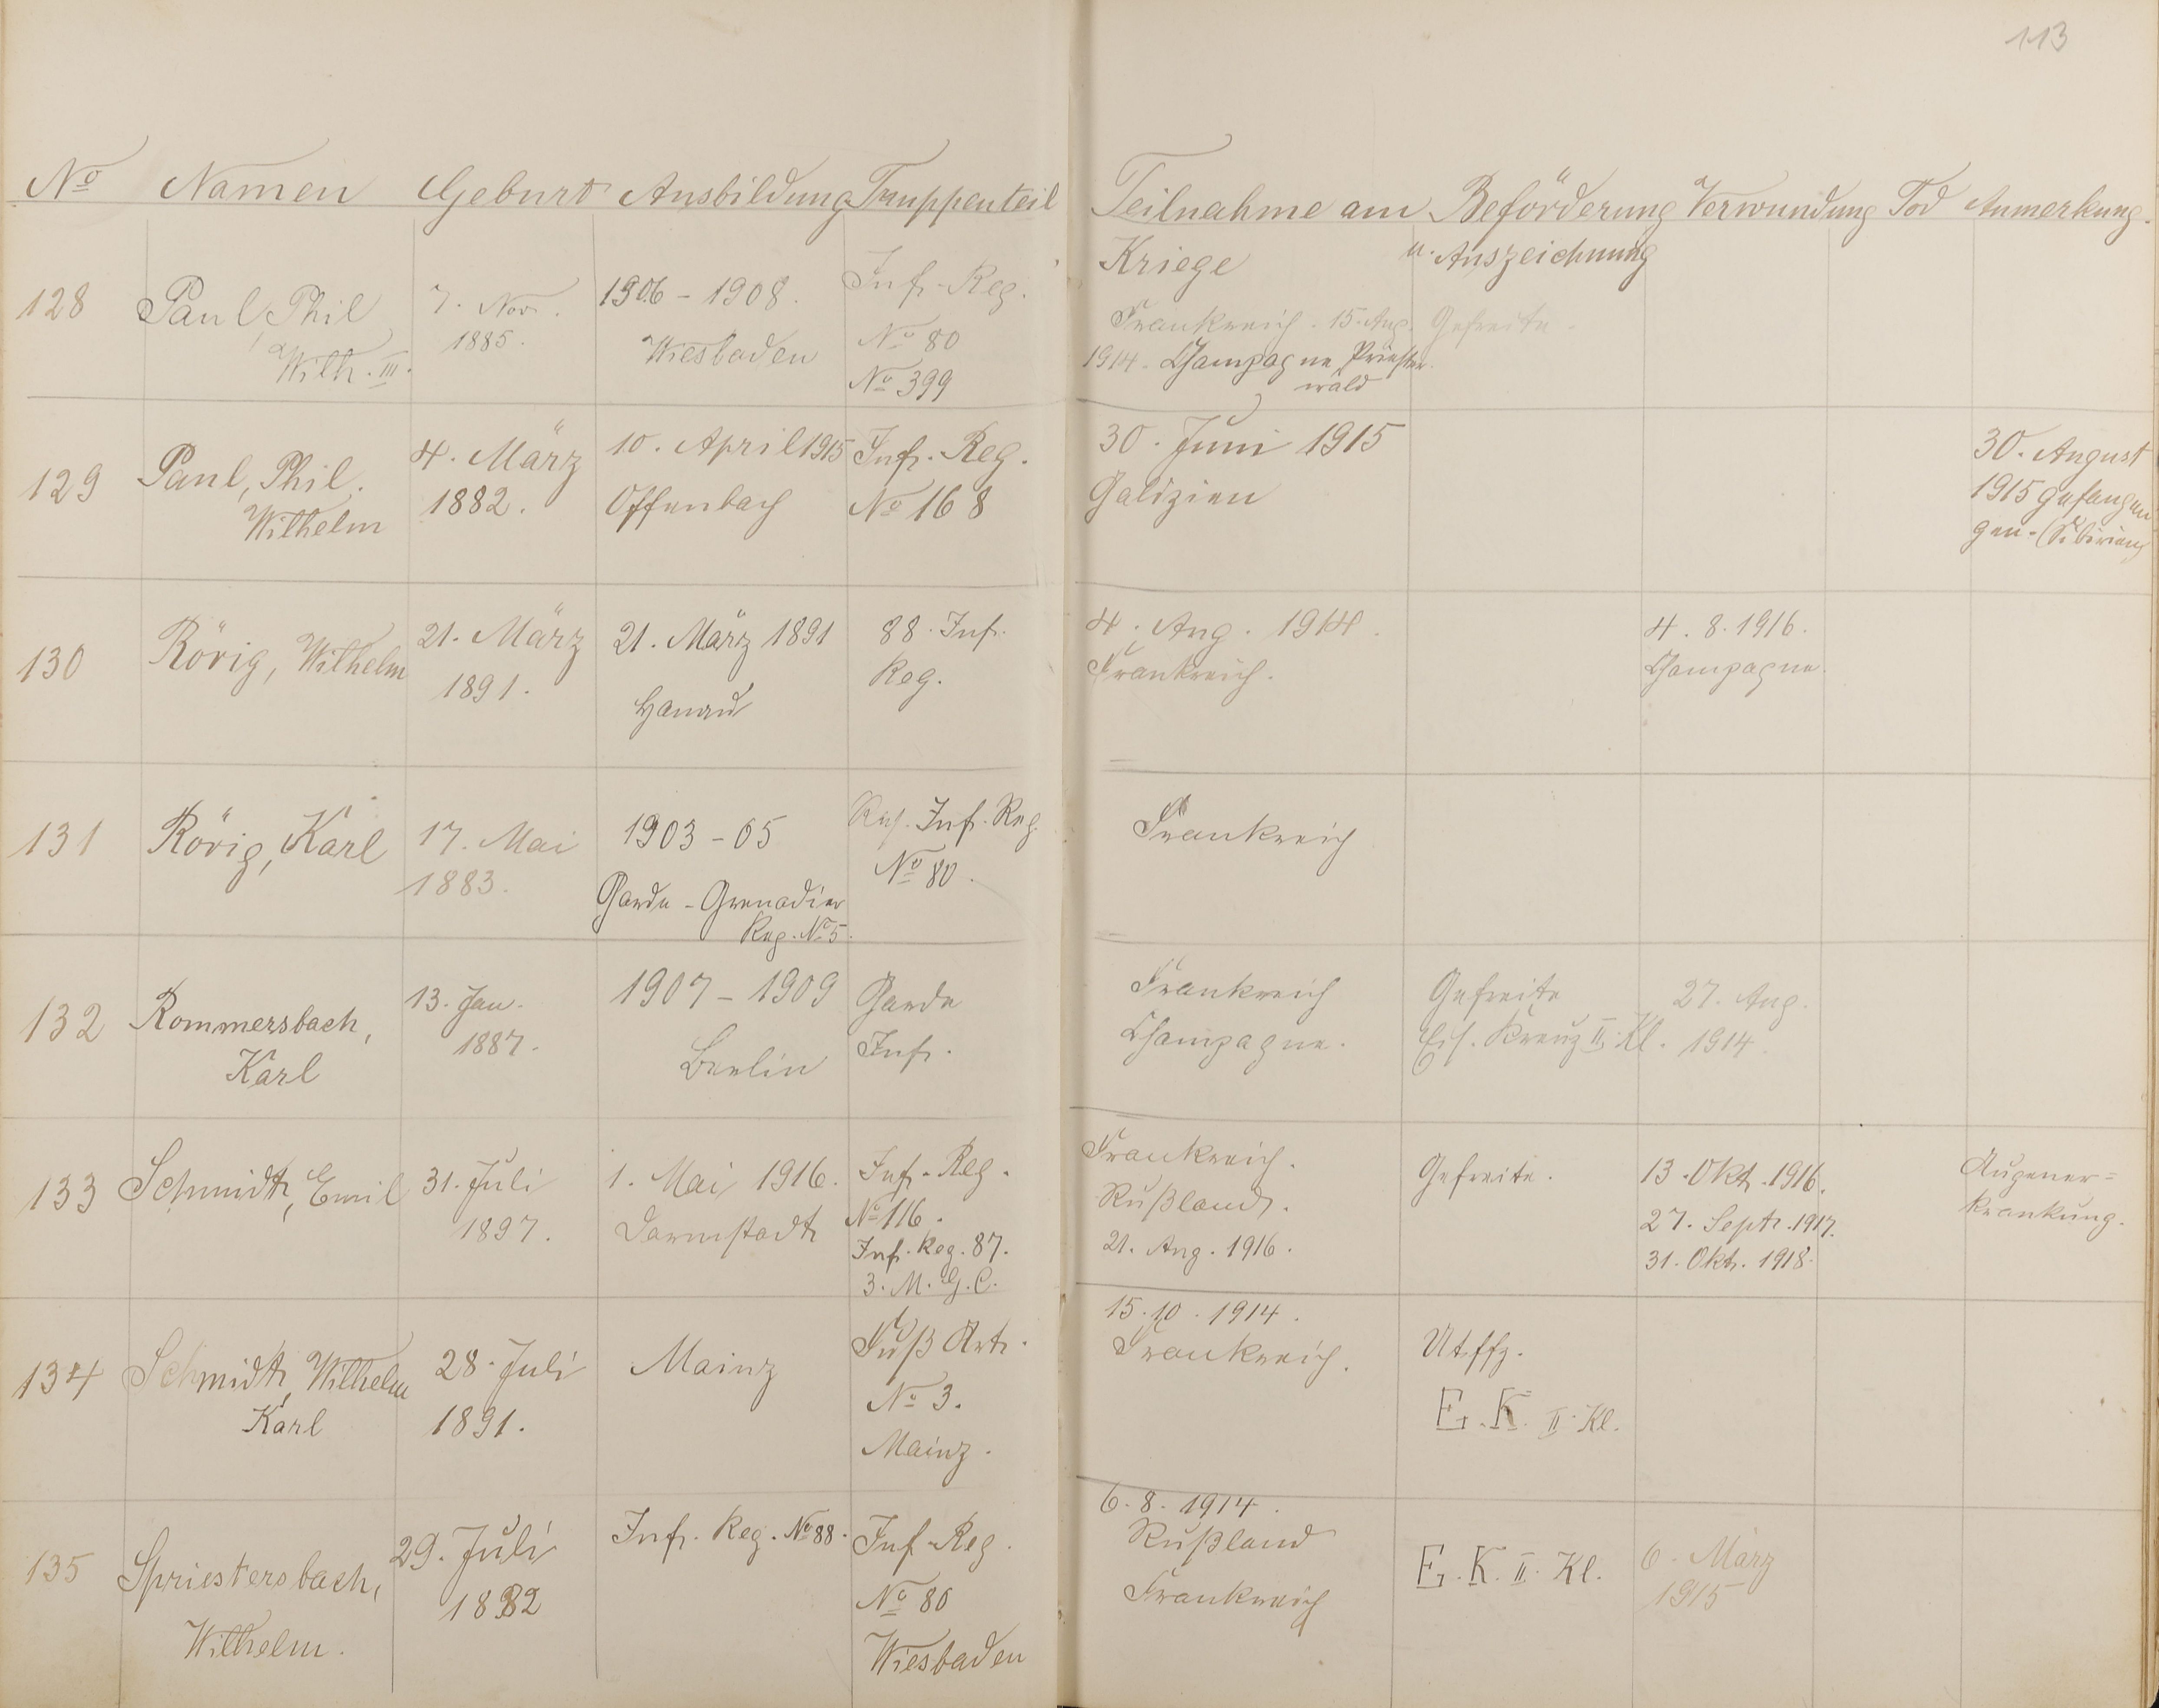 113
No Namen Geburt Ausbildung Truppenteil Teilnahme am Kriege Beförderung u. Auszeichnung Verwundung Tod Anmerkung.
128
Paul, Phil
Wilh. III.
7. Nov.
1885.
1906 - 1908.
Wiesbaden
Inf.-Reg.
No 80
No 399
Frankreich. 15. Aug.
1914. Champagne, Priester
wald
Gefreite.
129
Paul, Phil.
Wilhelm
4. März
1882.
10. April 1915
Offenbach
Inf.-Reg.
No 168
30. Juni 1915
Galizien
30. August
1915 gefangen
gen. (Sibirien)
130
Rörig, Wilhelm
21. März
1891.
21. März 1891
Hanau
88. Inf.
Reg.
4. Aug. 1914.
Frankreich.
4. 8. 1916.
Champagne.
131
Rörig, Karl
17. Mai
1883.
1903 - 05
Garde - Grenadier
Reg. No 5.
Res. Inf. Reg.
No 80.
Frankreich
132
Rommersbach,
Karl
13. Jan.
1887.
1907 - 1909
Berlin
Garde
Inf.
Frankreich
Champagne.
Gefreite
Eis. Kreuz II. Kl.
27. Aug.
1914.
133
Schmidt, Emil
31. Juli
1897.
1. Mai 1916.
Darmstadt
Inf.-Reg.
No 116.
Inf. Reg. 87.
3. M. G. C.
Frankreich.
Rußland.
21. Aug. 1916.
Gefreite.
13. Okt. 1916.
27. Sept. 1917.
31. Okt. 1918.
Augener=
krankung.
134
Schmidt, Wilhelm
Karl
28. Juli
1891.
Mainz
Fuß Art.
No 3.
Mainz.
15. 10. 1914.
Frankreich.
Utffz.
E. K. II. Kl.
135
Spriestersbach,
Wilhelm.
29. Juli
Inf. Reg. No 88.
Inf.-Reg.
No 80
Wiesbaden
6. 8. 1914.
Rußland
Frankreich
E. K. II. Kl.
6. März
1915